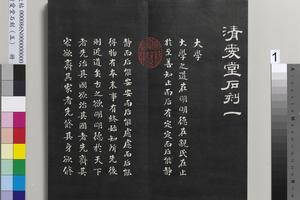 清愛堂石刻一
大學
大學之道在明明德在親民在止
於至善知止而后有定定而后能靜
靜而后能安安而后能慮慮而后能
得物有本末事有終始知所先後
則近道矣古之欲明明德於天下
者先治其國欲治其國者先齊其
家欲齊其家者先脩其身欲脩